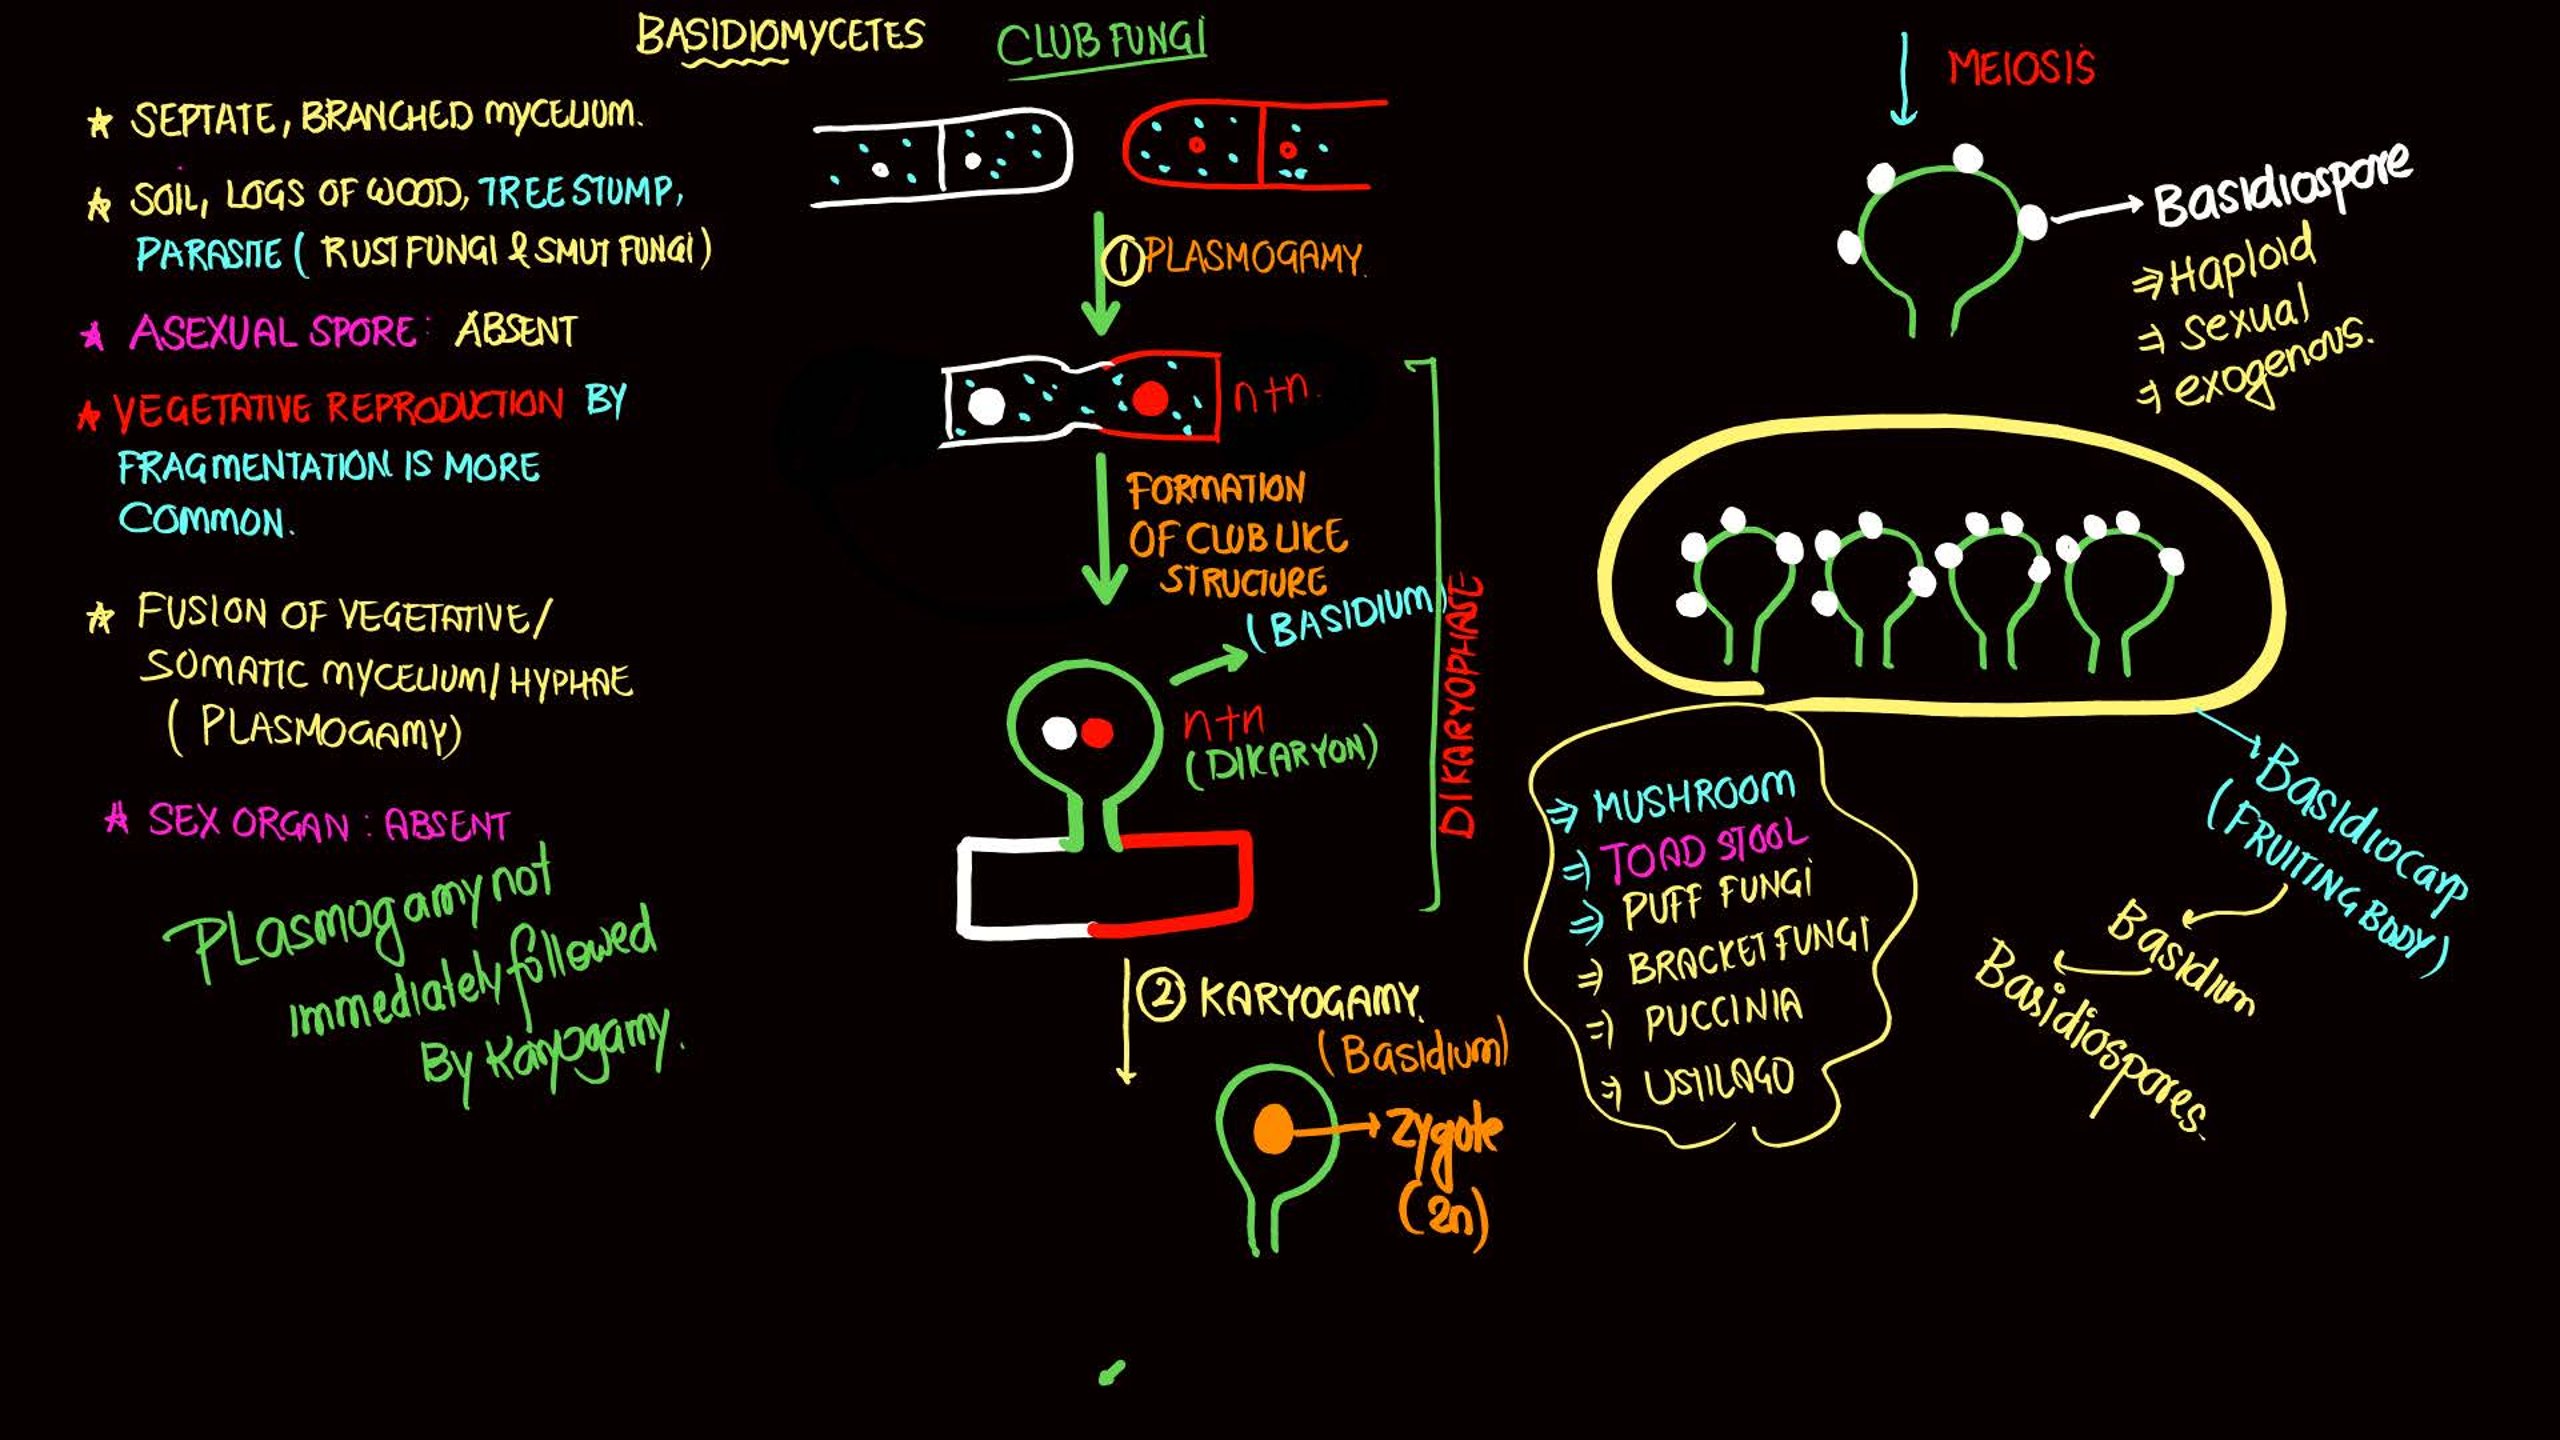 BASIDIOMYCETES CLUB FUNGI
★ SEPTATE, BRANCHED MYCELIUM.
★ SOIL, LOGS OF WOOD, TREE STUMP,
PARASITE ( RUST FUNGI & SMUT FUNGI)
★ ASEXUAL SPORE: ABSENT
★ VEGETATIVE REPRODUCTION BY
FRAGMENTATION IS MORE
COMMON.
★ FUSION OF VEGETATIVE/
SOMATIC MYCELIUM/HYPHAE
( PLASMOGAMY)
★ SEX ORGAN : ABSENT
PLasmogamy not
immediately followed
By Karyogamy.
① PLASMOGAMY.
n+n.
FORMATION
OF CLUB LIKE
STRUCTURE
(BASIDIUM)
n+n
(DIKARYON)
DIKARYOPHASE
② KARYOGAMY.
(Basidium)
→ Zygote
(2n)
↓ MEIOSIS
→ Basidiospore
⇒ Haploid
⇒ sexual
⇒ exogenous.
→ Basidiocarp
(FRUITING BODY)
Basidium
Basidiospores.
⇒ MUSHROOM
⇒ TOAD STOOL
⇒ PUFF FUNGI
⇒ BRACKET FUNGI
⇒ PUCCINIA
⇒ USTILAGO